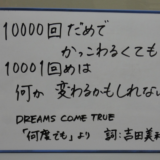 10000回だめで
かっこわるくても
10001回めは
何か 変わるかもしれない
DREAMS COME TRUE
「何度でも」より 詞:吉田美和